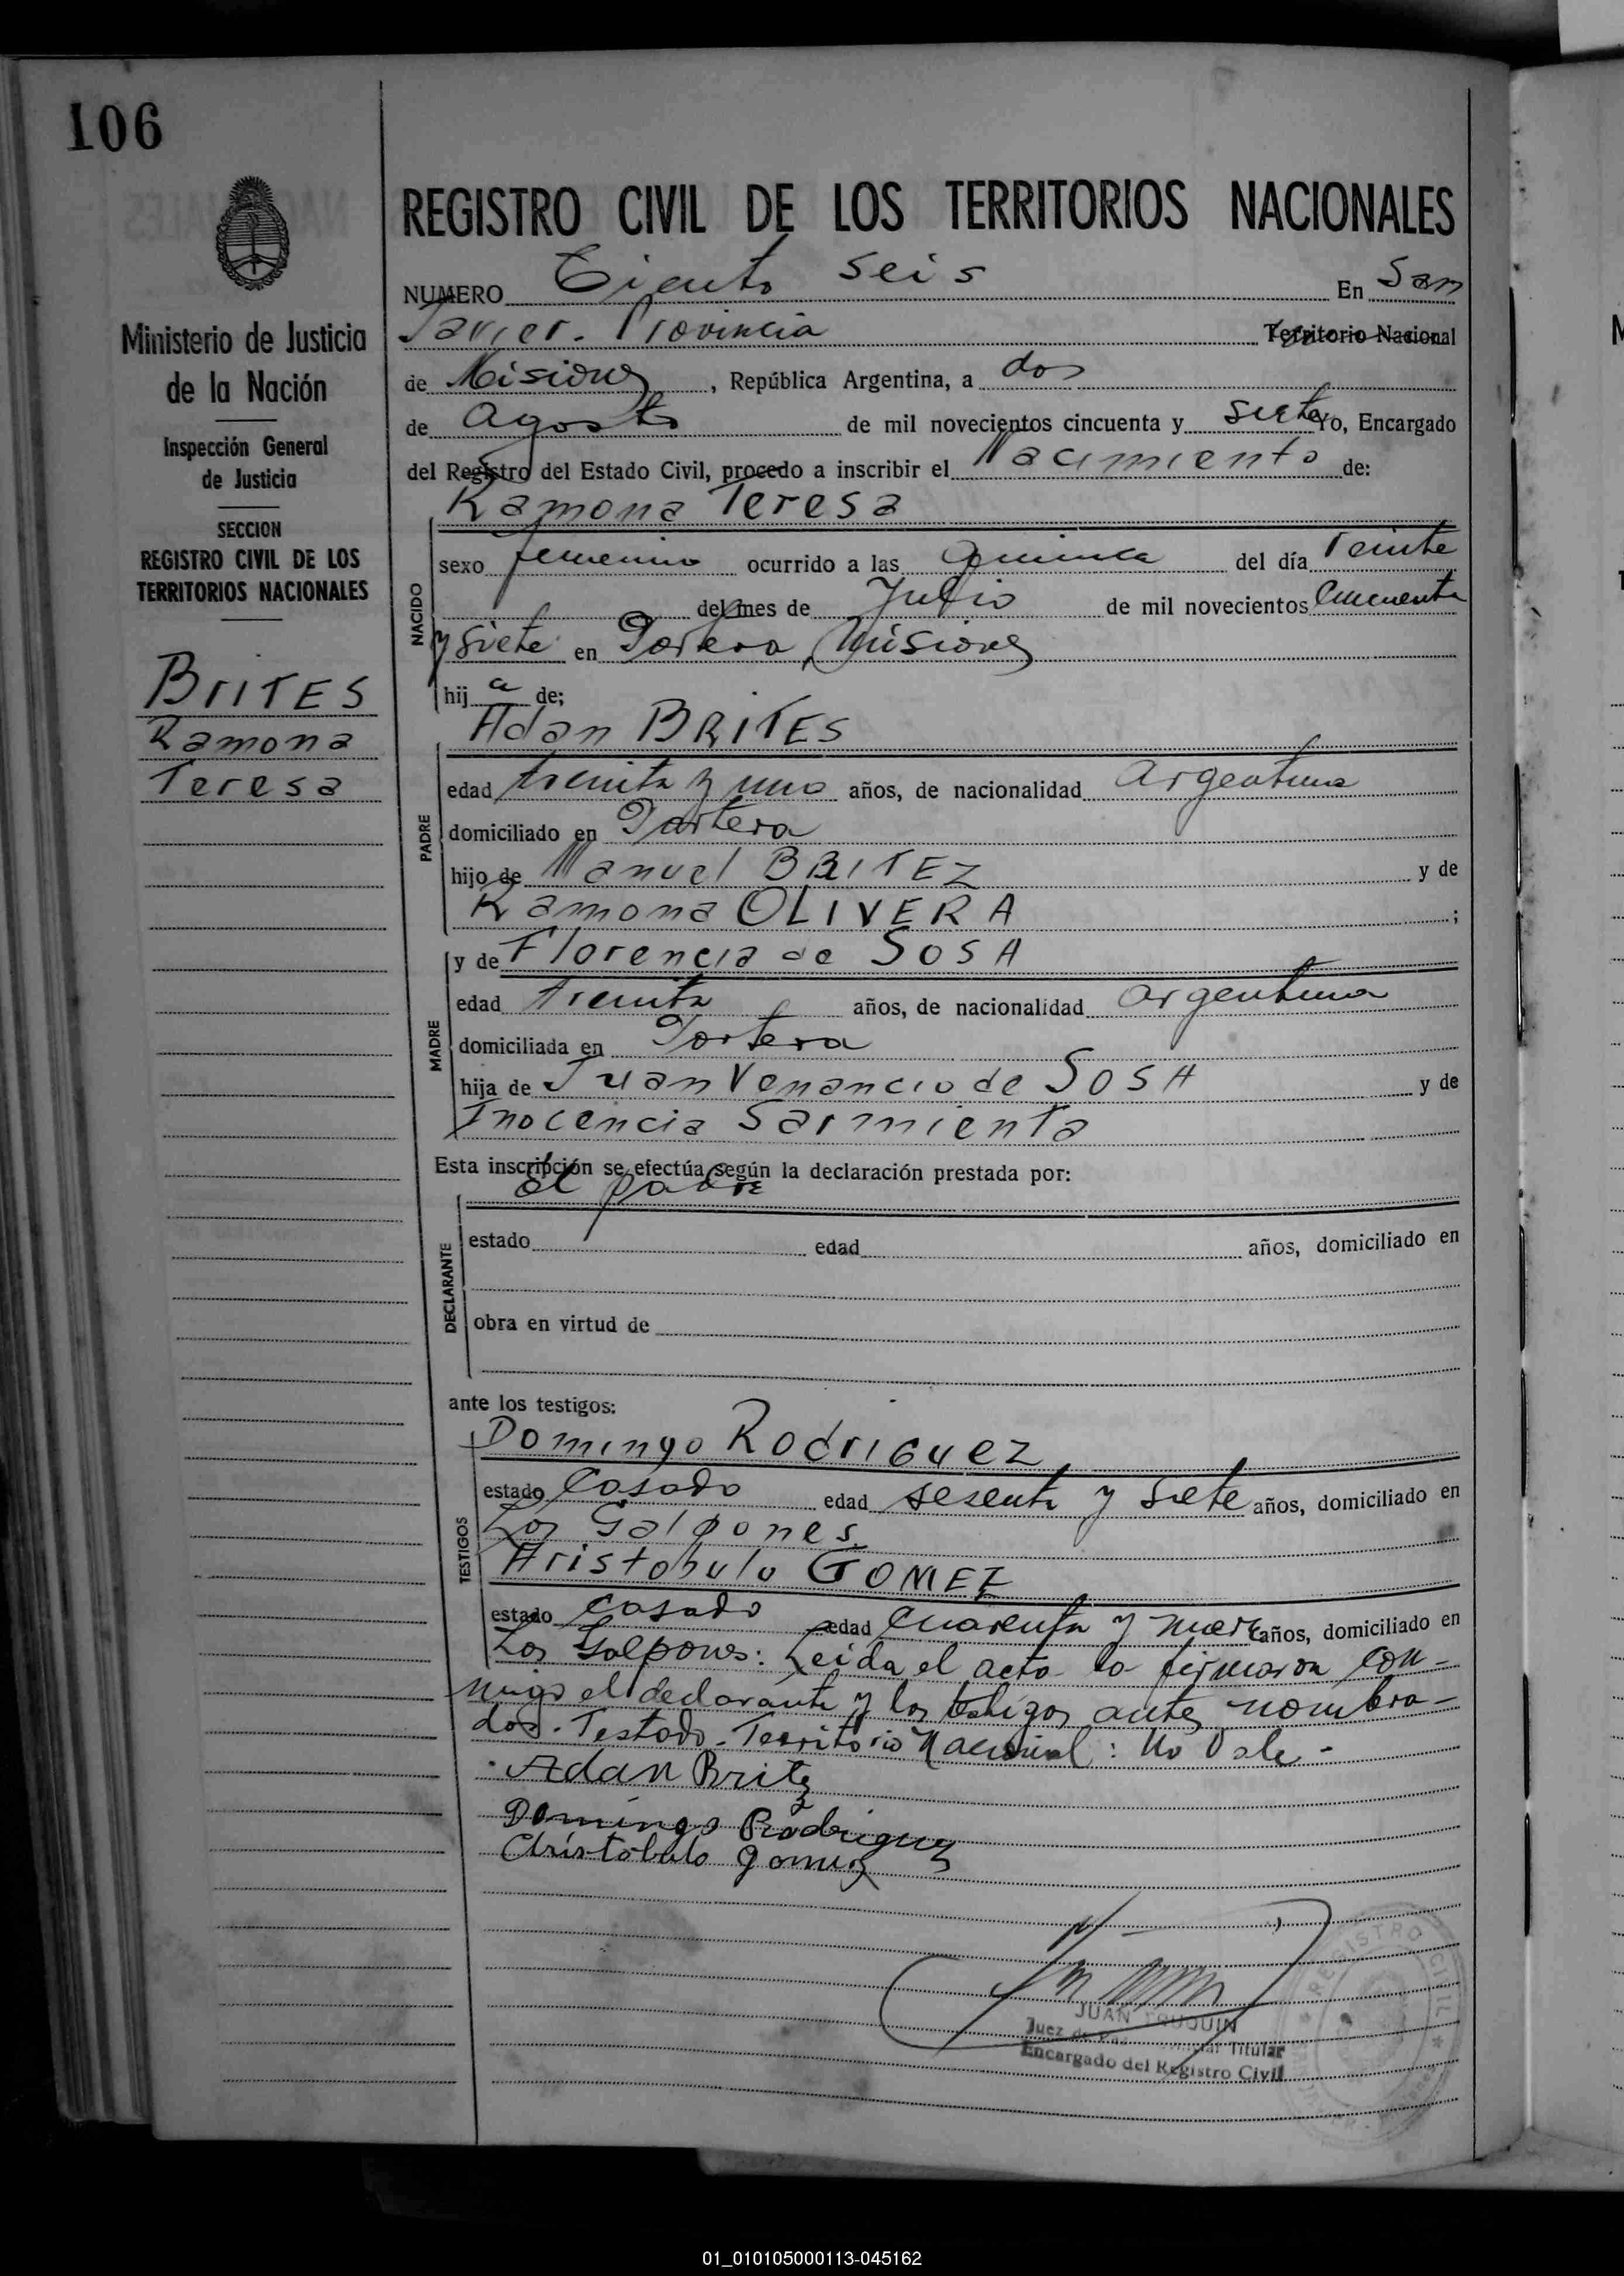 106
REGISTRO CIVIL DE LOS TERRITORIOS NACIONALES
NUMERO Ciento Seis En San
Javier. Provincia Territorio Nacional
de Misiones, República Argentina, a dos
de agosto de mil novecientos cincuenta y siete Yo, Encargado
del Registro del Estado Civil, procedo a inscribir el Nacimiento de:
Ramona Teresa
NACIDO
sexo femenino ocurrido a las quince del día Veinte
del mes de Julio de mil novecientos Cincuenta
y siete en Portera, Misiones
hija de;
Adan BRITES
PADRE
edad treinta y uno años, de nacionalidad argentina
domiciliado en Portera
hijo de Manuel BRITEZ y de
Ramona OLIVERA ;
y de Florencia de SOSA
MADRE
edad treinta años, de nacionalidad argentina
domiciliada en Portera
hija de Juan Venancio de SOSA y de
Inocencia Sarmienta
Esta inscripción se efectúa según la declaración prestada por:
el padre
DECLARANTE
estado edad años, domiciliado en
obra en virtud de
ante los testigos:
Domingo RodriGuez
TESTIGOS
estado Casado edad sesenta y siete años, domiciliado en
Los Galpones
Aristobulo GOMEZ
estado casado edad cuarenta y nueve años, domiciliado en
Los Galpones: Leida el acta la firmaron con-
migo el declarante y los testigos antes nombra-
dos. Testado. Territorio Nacional: No Vale -
Adan Britez
Domingo Rodriguez
Christobulo Gomez
JUAN TOUQUIN
Juez de Paz Titular
Encargado del Registro Civil
REGISTRO CIVIL
Ministerio de Justicia
de la Nación
Inspección General
de Justicia
SECCION
REGISTRO CIVIL DE LOS
TERRITORIOS NACIONALES
BRITES
Ramona
Teresa
01_010105000113-045162